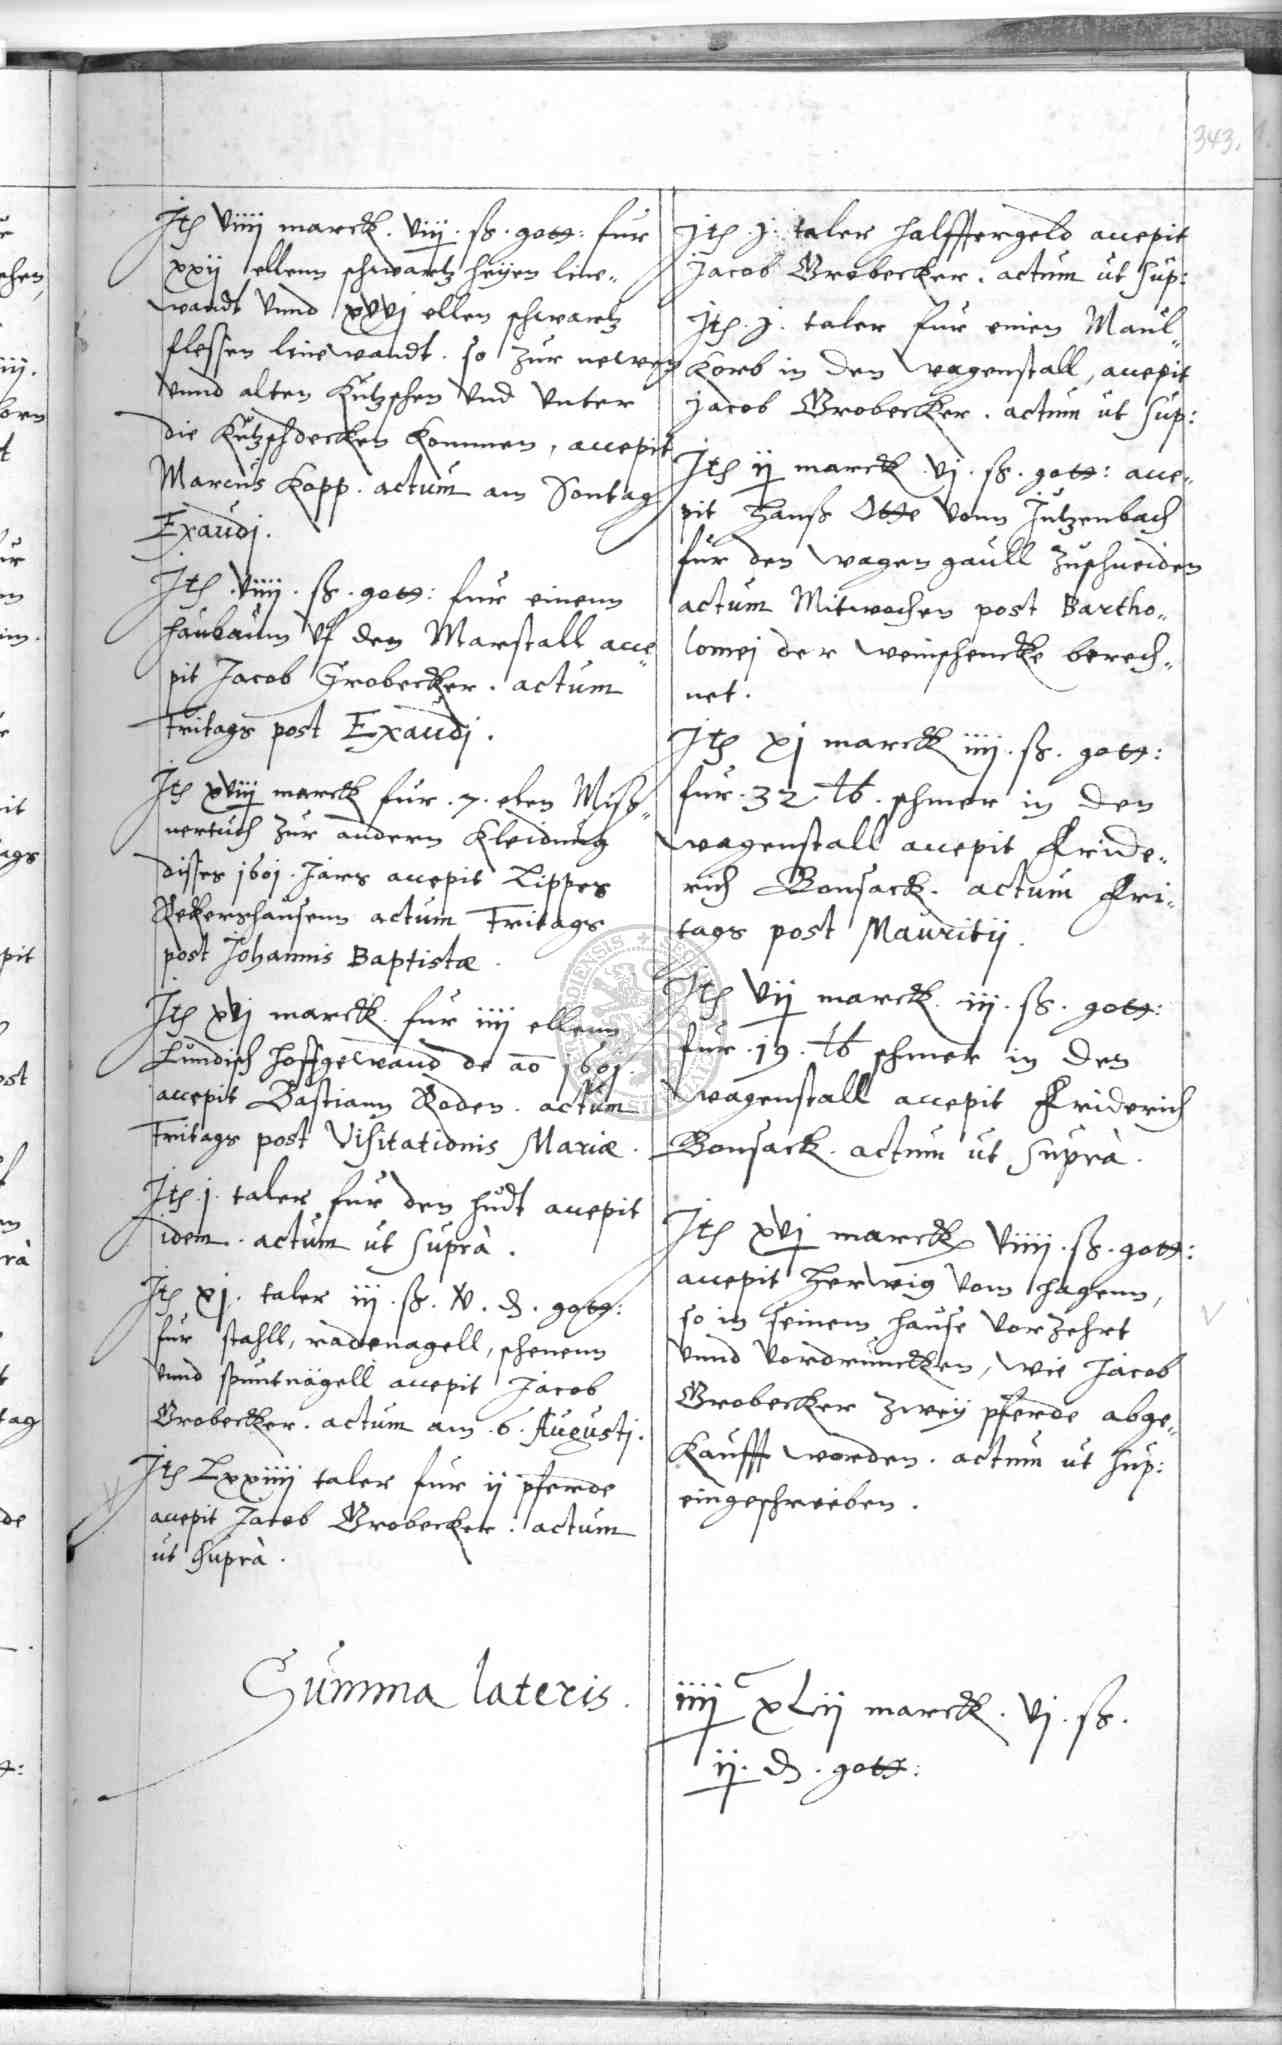 343.
Jtȩ viiii marck. viij. ß. gott: fur
xxij ellenn schwartz heijen line„
wandt vnnd xvvj ellen schwartz
flessen leinewandt. so zur newen
vnnd alten Kutzschen vnd vnter
die Kutzschdecken kommen, accepit
Marcus Kopp. actum am Sontag
Exaudj.
Jtȩ. viiij. ß. gott: fur einenn
haubaum vf den Marstall acce„
pit Jacob Grobecker. actum
Fritags post Exaudj.
Jtȩ xviij marck fur. 7. elen Miß„
nertuch zur andern Kleidung
disses 1601. Jars accepit Lippes
Rekershausenn actum Fritags
post Johannis Baptistæ.
Jtȩ xvj marck. fur iiij ellenn
Lundisch hoffgewand de ao 1601.
accepit Bastiann Roden. actum
Fritags post Visitationis Mariæ.
Jtȩ. j. taler fur den hudt accepit
idem. actum ut suprà.
Jtȩ xj. taler iij. ß. v. ₰. gott:
fur stahll, radenagell, schenenn
vnnd spuntnägell accepit Jacob
Grobecker. actum am. 6. Augustj.
Jtȩ Lxxiiij taler fur ij pferde
accepit Jacob Grobecker. actum
ut suprà.
Summa lateris.
Jtȩ. j. taler halfftergeld accepit
Jacob Grobecker. actum ut sup:
Jtȩ. j. taler fur einen Maul„
korb in den wagenstall, accepit
Jacob Grobecker. actum ut sup:
Jtȩ ij marck. vj. ß. gott: acce„
pit Hanß Otte vonn Jutzenbach
fur den wagen gaull zuschneiden
actum Mitwochen post Bartho„
lomej der weinschencke berech„
net.
Jtȩ xj marck iiij. ß. gott:
fur. 32 ℔. schmer in den
wagenstall accepit Fride„
rich Bonsack. actum Fri„
tags post Mauritij.
Jtȩ vij marck. iij. ß. gott:
fur. 19. ℔ schmer in den
wagenstall accepit Friderich
Bonsack. actum ut suprà.
Jtȩ xvj marck viiij. ß. gott:
accepit Herwig vom hagenn,
so in seinem hause vorzehrt
vnnd vordrunckken, wie Jacob
Grobecker zweij pferde abge„
kaufft worden. actum ut sup:
eingeschrieben.
iiij C xLij marck. vj. ß.
ij. ₰. gott: